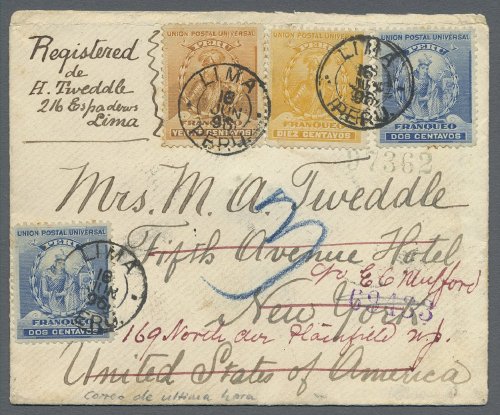 Registered
de
H. Tweddle
216 Espaderos
Lima
UNION POSTAL UNIVERSAL
PERU
FRANQUEO
VEINTE CENTAVOS
UNION POSTAL UNIVERSAL
PERU
FRANQUEO
DIEZ CENTAVOS
UNION POSTAL UNIVERSAL
PERU
FRANQUEO
DOS CENTAVOS
LIMA
18
JUN
96
PERU.
LIMA
16
96
PERU.
37362
Mrs. M. A. Tweddle
3
Fifth Avenue Hotel
c/o E C Mufford
New York
169 North ave Plainfield N.J.
United States of America
UNION POSTAL UNIVERSAL
PERU
FRANQUEO
DOS CENTAVOS
LIMA
18
JUN
96
PERU.
Correo de ultima hora